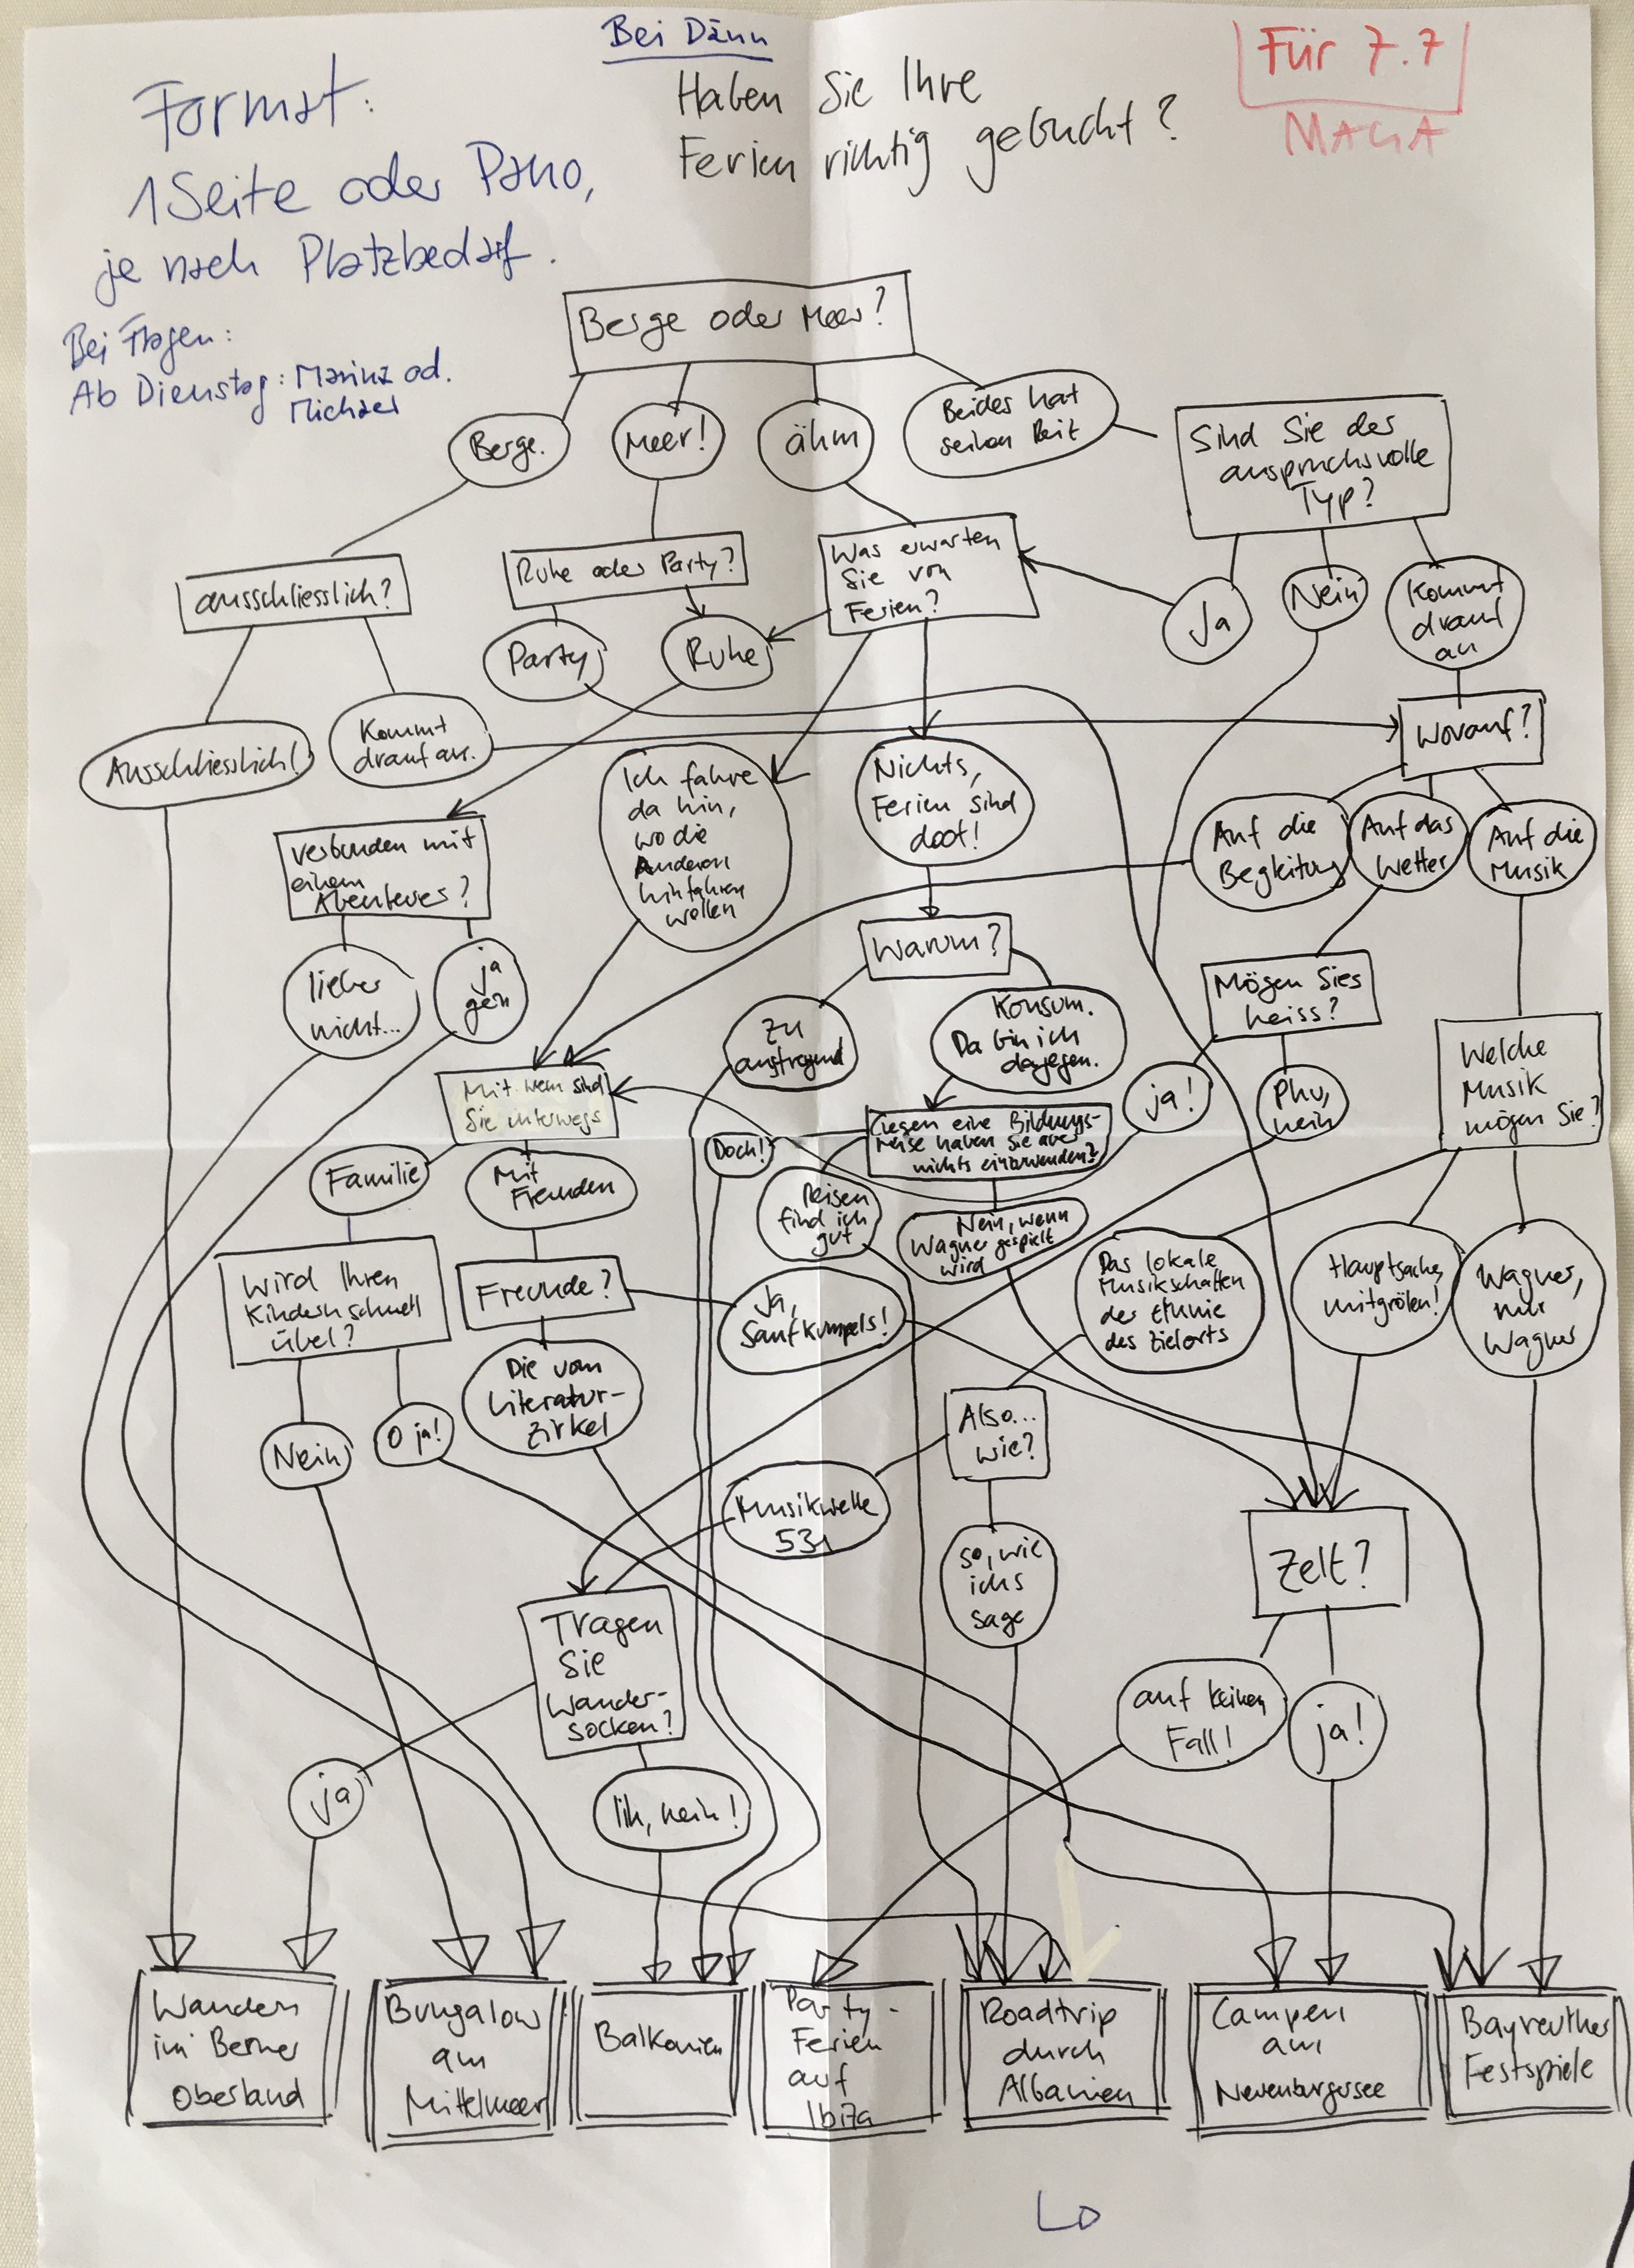 Bei Dänu
Für 7.7
MAGA
Format:
1 Seite oder Pano,
je nach Platzbedarf.
Haben Sie Ihre
Ferien richtig gebucht?
Bei Fragen:
Ab Dienstag: Marina od.
Michael
Berge oder Meer?
Berge.
Meer!
ähm
Beides hat
seinen Reiz
Sind Sie der
anspruchsvolle
Typ?
ausschliesslich?
Ruhe oder Party?
Was erwarten
Sie von
Ferien?
Ja
Nein
Kommt
drauf
an
Party
Ruhe
Ausschliesslich!
Kommt
drauf an.
Worauf?
Ich fahre
da hin,
wo die
Anderen
hinfahren
wollen
Nichts,
Ferien sind
doof!
Auf die
Begleitung
Auf das
Wetter
Auf die
Musik
Verbunden mit
einem
Abenteuer?
Warum?
lieber
nicht...
ja
gern
Mögen Sies
heiss?
Zu
anstregend
Konsum.
Da bin ich
dagegen.
Welche
Musik
mögen Sie?
Mit wem sind
Sie unterwegs
ja!
Phu,
nein
Gegen eine Bildungs-
reise haben Sie aber
nichts einzuwenden?
Doch!
Familie
Mit
Freunden
Reisen
find ich
gut
Nein, wenn
Wagner gespielt
wird
Das lokale
Musikschaffen
der Ethnie
des Zielorts
Hauptsache,
mitgrölen!
Wagner,
nur
Wagner
Wird Ihren
Kindern schnell
übel?
Freunde?
Ja,
Saufkumpels!
Die vom
Literatur-
zirkel
Nein
O ja!
Also...
wie?
Musikwelle
531
so, wie
ichs
sage
Zelt?
Tragen
Sie
Wander-
socken?
auf keinen
Fall!
ja!
ja
Iih, nein!
Wandern
im Berner
Oberland
Bungalow
am
Mittelmeer
Balkonien
Party-
Ferien
auf
Ibiza
Roadtrip
durch
Albanien
Campen
am
Neuenburgersee
Bayreuther
Festspiele